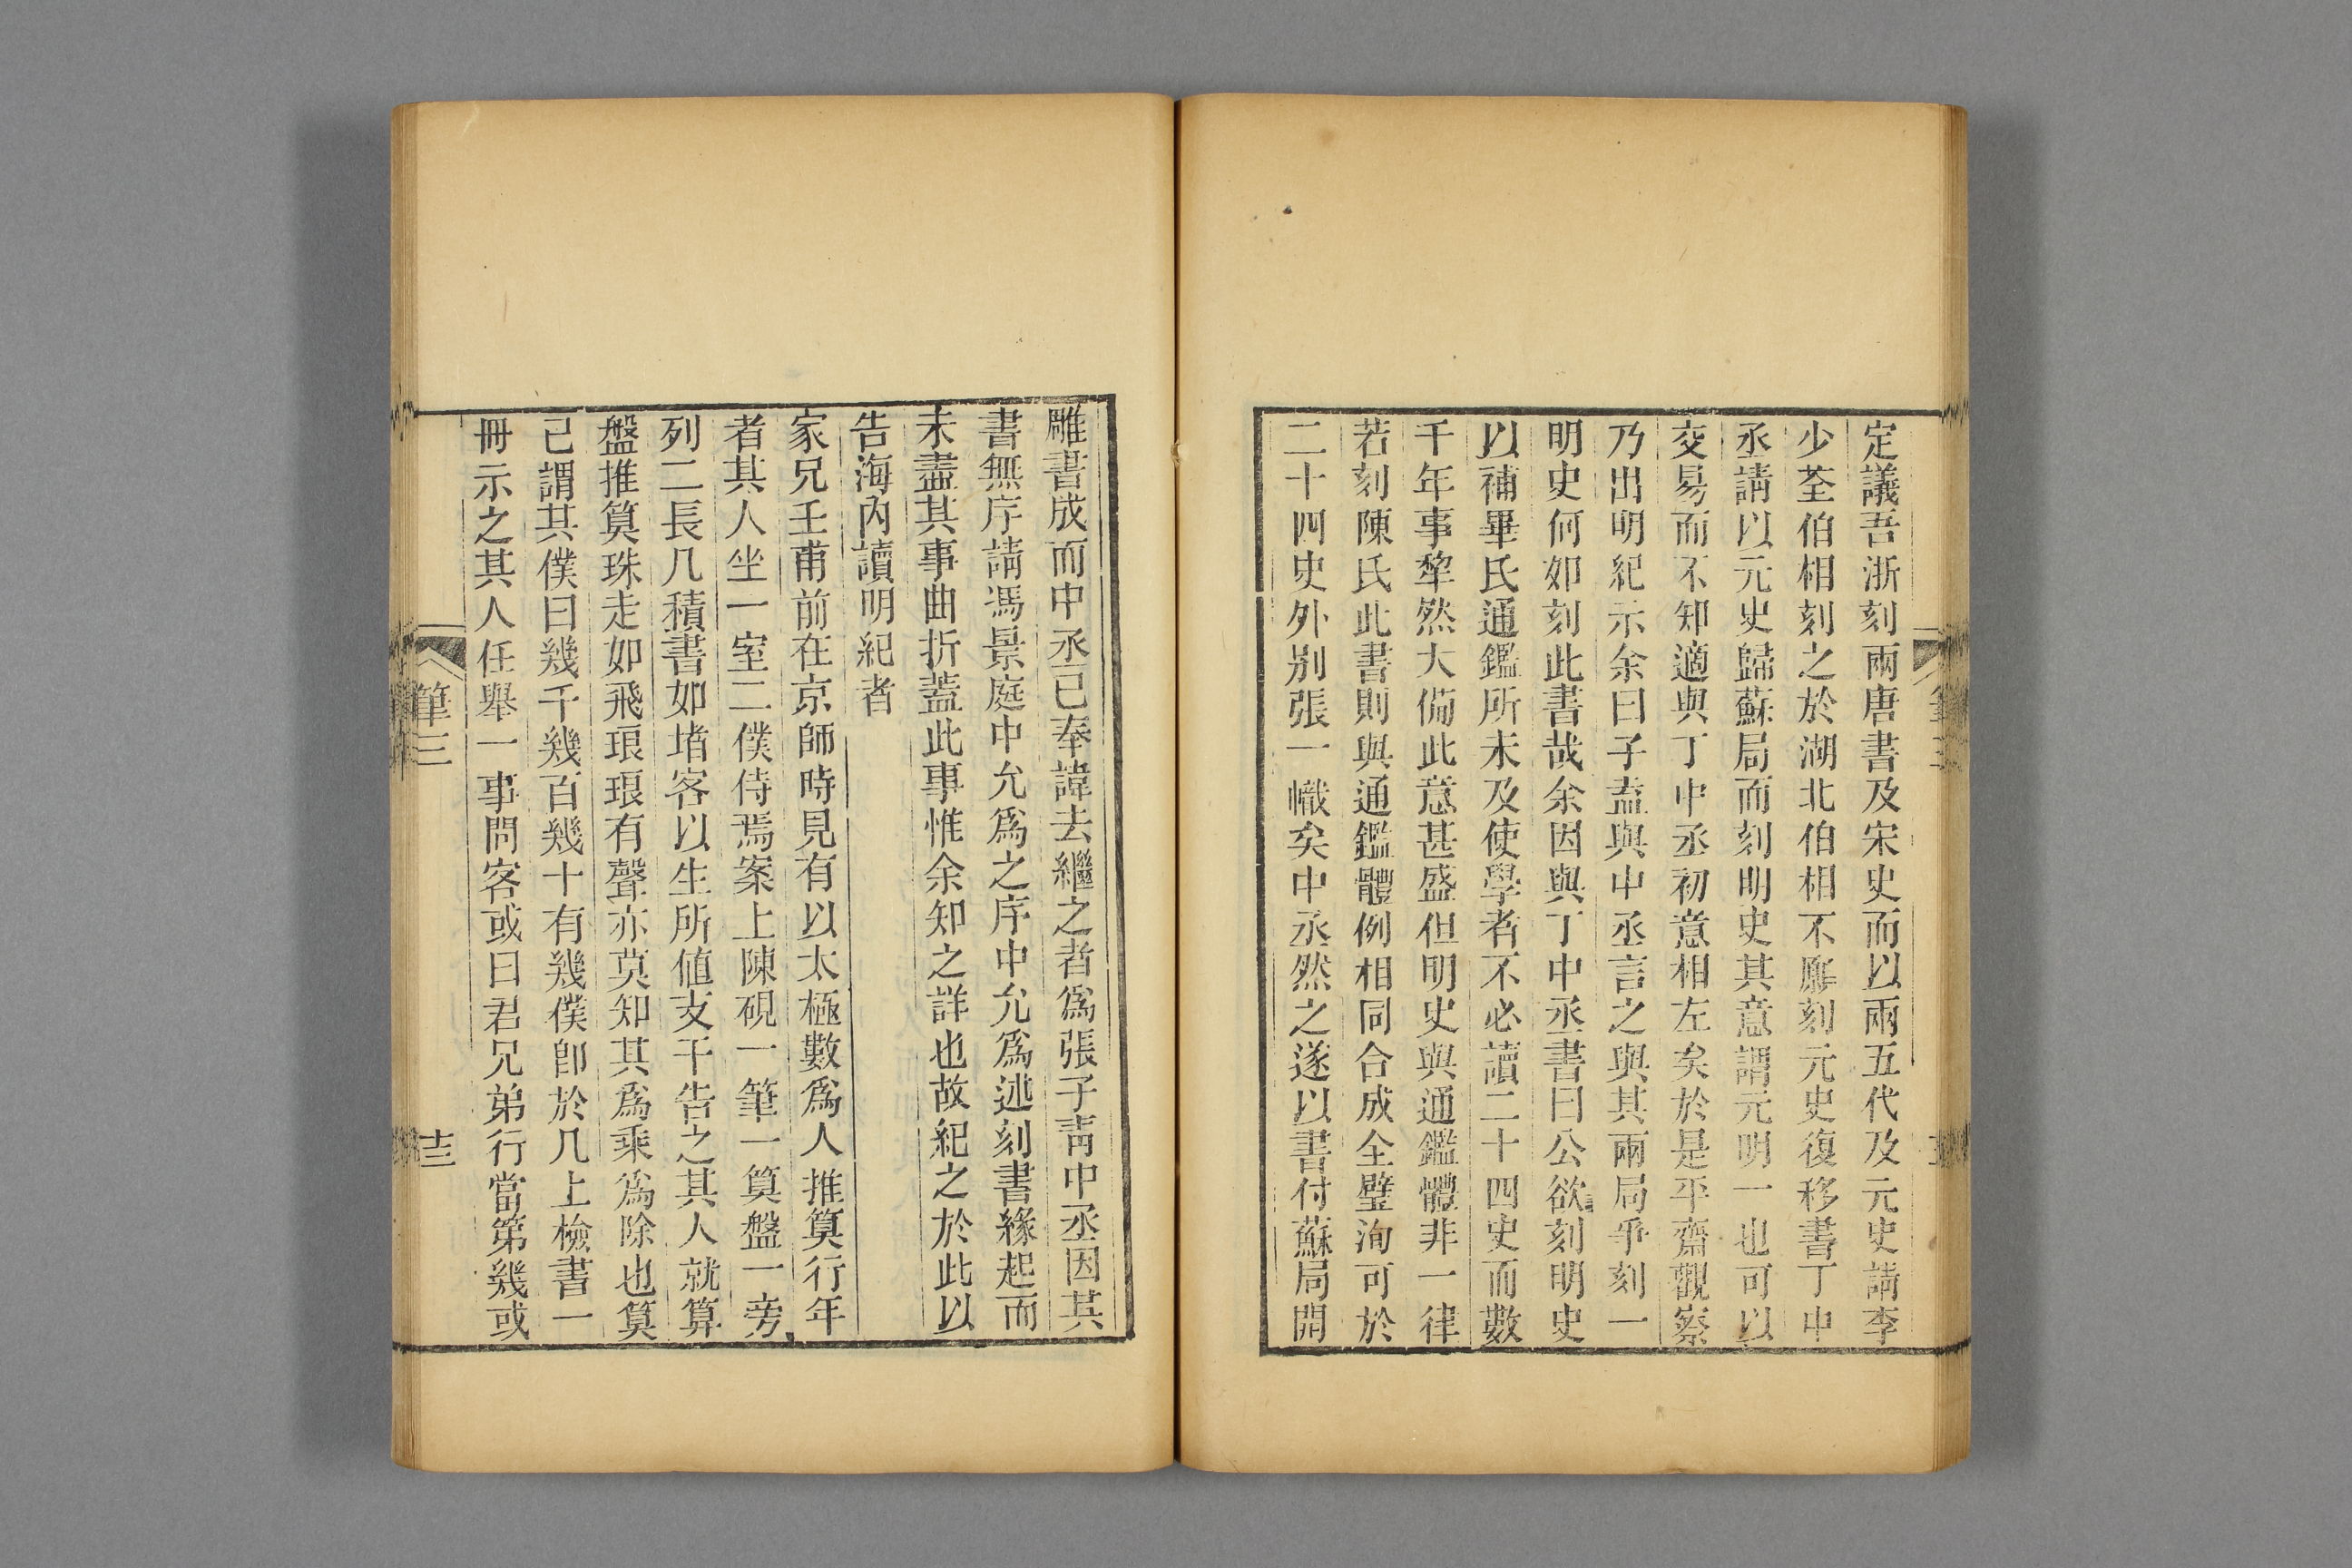 定議吾浙刻兩唐書及宋史而以兩五代及元史請李
少荃伯相刻之於湖北伯相不願刻元史復移書丁中
丞請以元史歸蘇局而刻明史其意謂元明一也可以
交易而不知適與丁中丞初意相左矣於是平齋觀察
乃出明紀示余曰子盍與中丞言之與其兩局爭刻一
明史何如刻此書哉余因與丁中丞書曰公欲刻明史
以補畢氏通鑑所未及使學者不必讀二十四史而數
千年事犂然大備此意甚盛但明史與通鑑體非一律
若刻陳氏此書則與通鑑體例相同合成全璧洵可於
二十四史外別張一幟矣中丞然之遂以書付蘇局開
雕書成而中丞已奉諱去繼之者爲張子靑中丞因其
書無序請馮景庭中允爲之序中允爲述刻書緣起而
未盡其事曲折蓋此事惟余知之詳也故紀之於此以
告海內讀明紀者
家兄壬甫前在京師時見有以太極數爲人推算行年
者其人坐一室二僕侍焉案上陳硯一筆一算盤一旁
列二長几積書如堵客以生所値支干告之其人就算
盤推算珠走如飛琅琅有聲亦莫知其爲乘爲除也算
已謂其僕曰幾千幾百幾十有幾僕卽於几上檢書一
冊示之其人任舉一事問客或曰君兄弟行當第幾或
筆三
十三